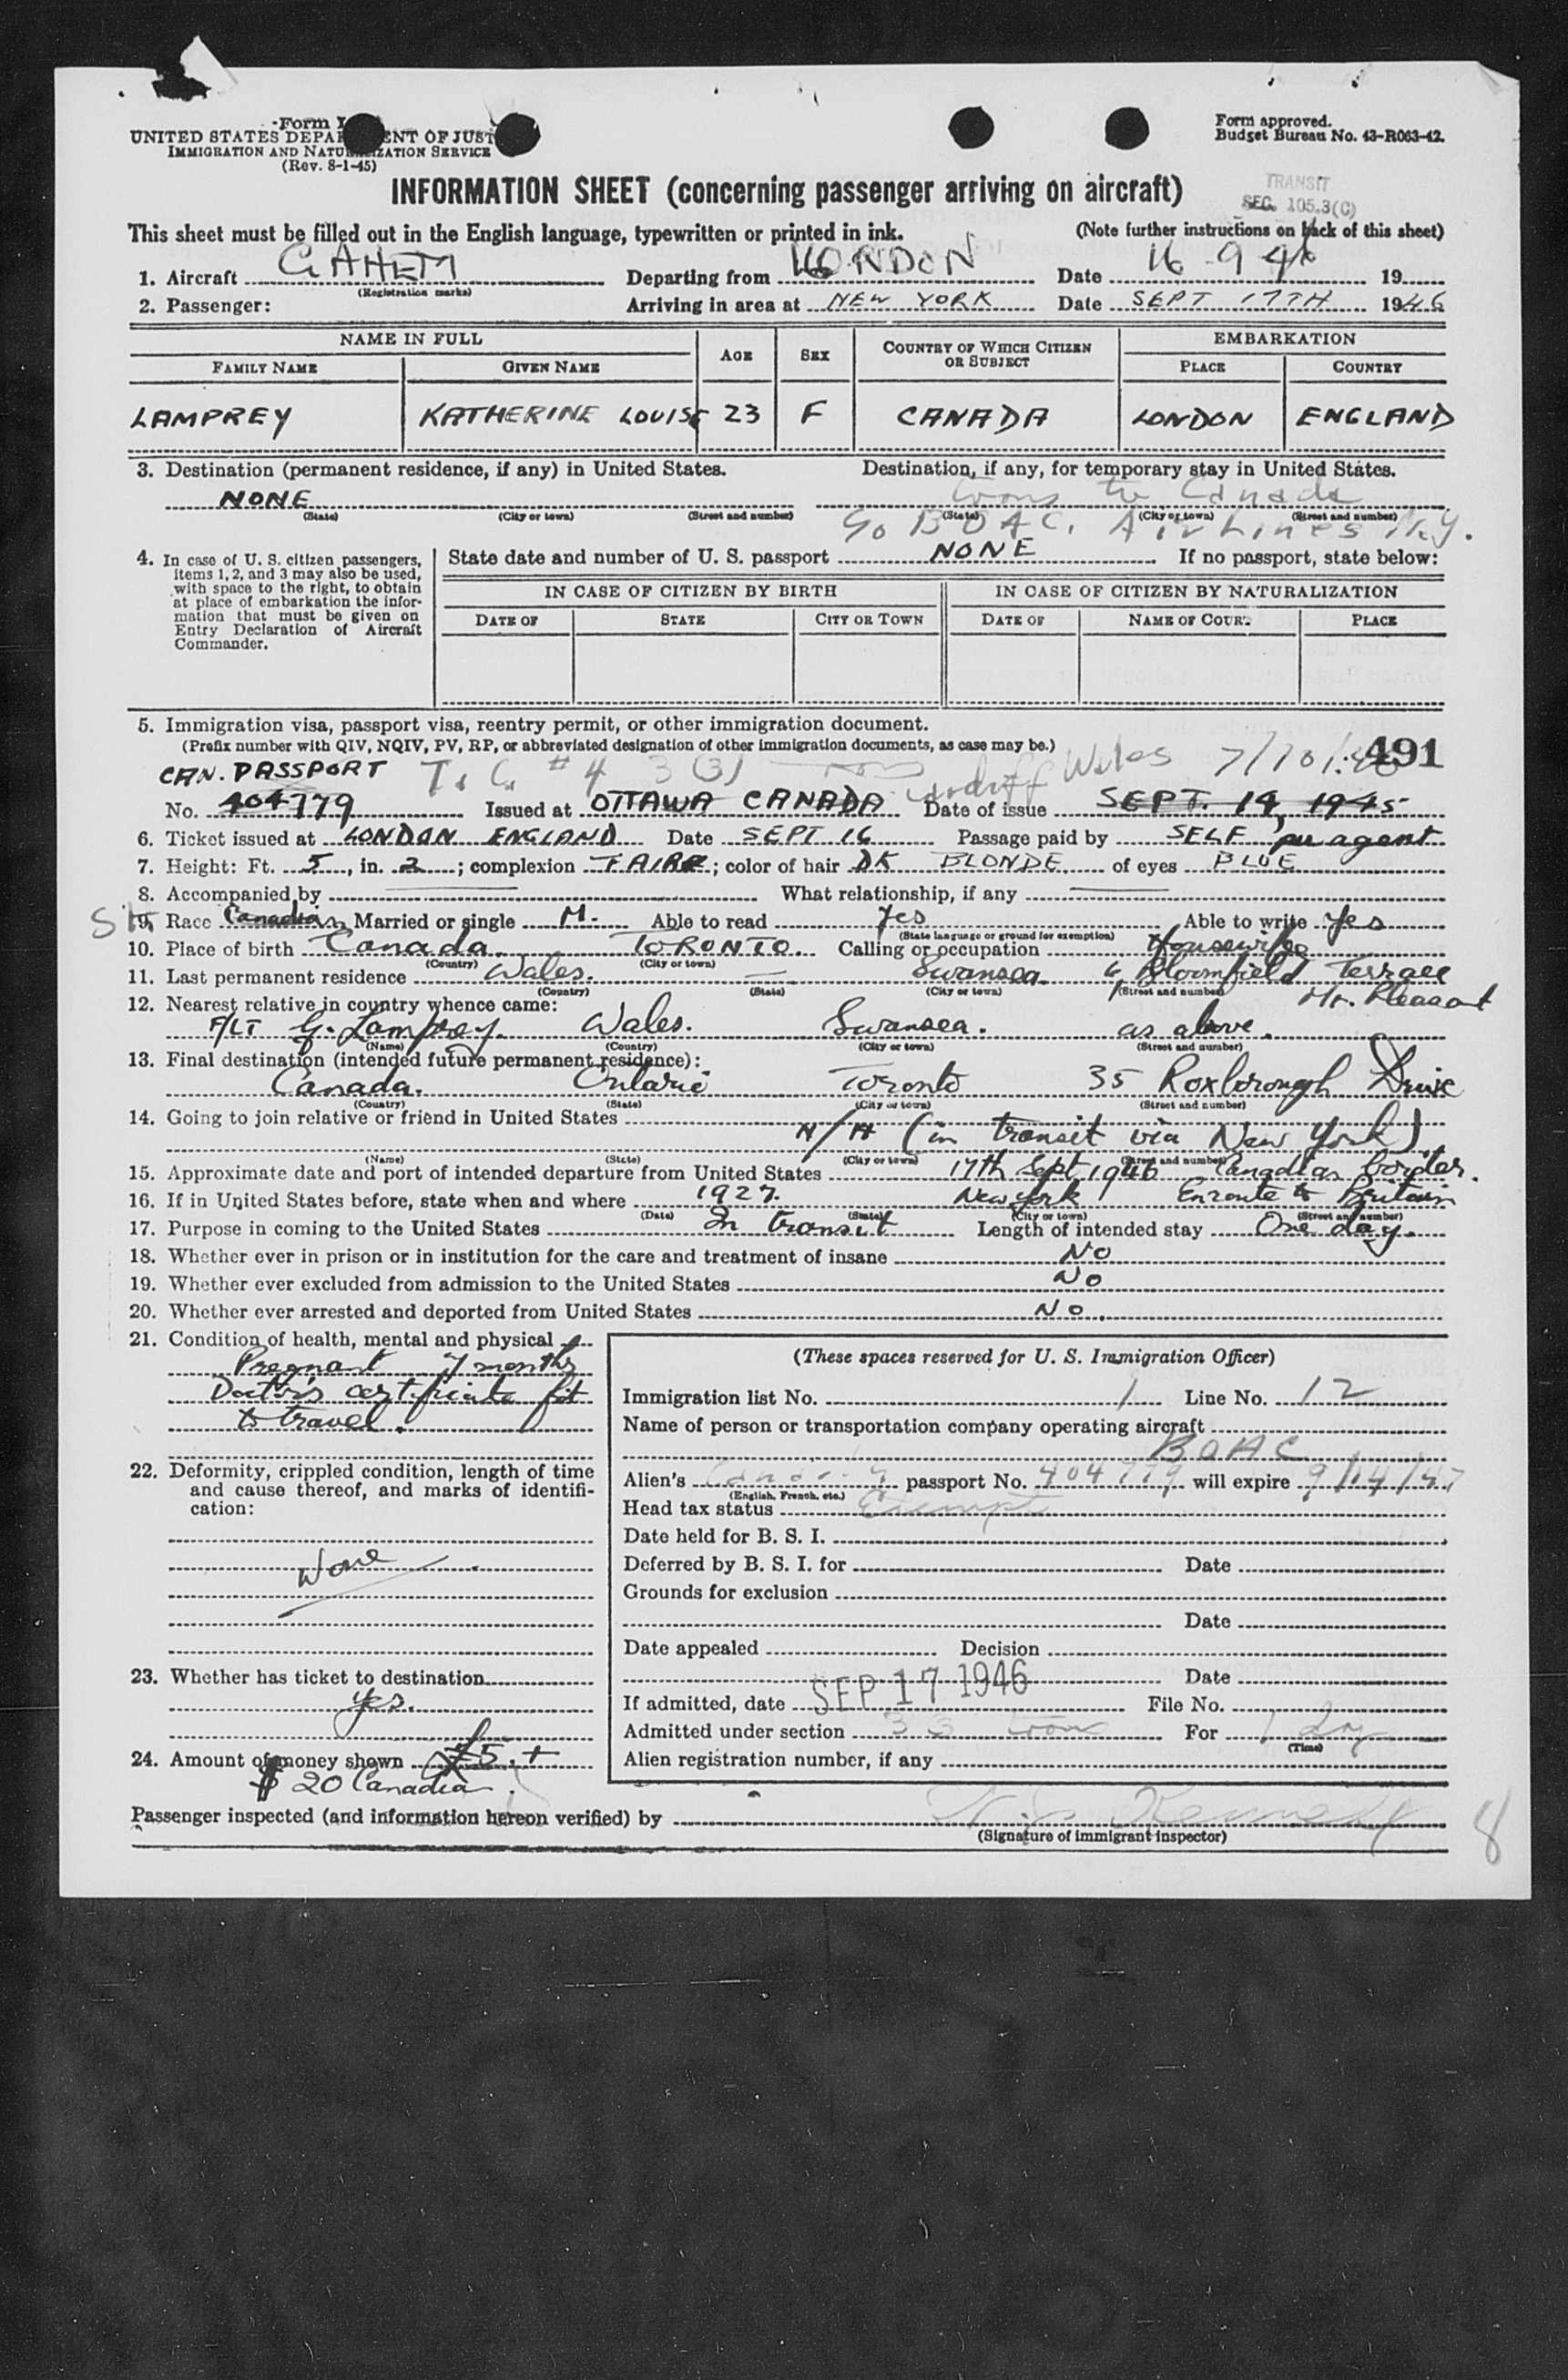 Form I
UNITED STATES DEPARTMENT OF JUSTICE
IMMIGRATION AND NATURALIZATION SERVICE
(Rev. 8-1-45)
Form approved.
Budget Bureau No. 43-R063-42.
INFORMATION SHEET (concerning passenger arriving on aircraft)
TRANSIT
SEC. 105.3(C)
This sheet must be filled out in the English language, typewritten or printed in ink. (Note further instructions on back of this sheet)
1. Aircraft GAHEM Departing from LONDON Date 16 9 46 19
(Registration marks)
2. Passenger: Arriving in area at NEW YORK Date SEPT 17TH 1946
NAME IN FULL AGE SEX COUNTRY OF WHICH CITIZEN OR SUBJECT EMBARKATION
FAMILY NAME GIVEN NAME PLACE COUNTRY
LAMPREY KATHERINE LOUISE 23 F CANADA LONDON ENGLAND
3. Destination (permanent residence, if any) in United States. Destination, if any, for temporary stay in United States.
NONE trans to Canada
(State) (City or town) (Street and number) (State) (City or town) (Street and number)
Go BOAC. AirLines N.Y.
4. In case of U. S. citizen passengers, items 1, 2, and 3 may also be used, with space to the right, to obtain at place of embarkation the information that must be given on Entry Declaration of Aircraft Commander.
State date and number of U. S. passport NONE If no passport, state below:
IN CASE OF CITIZEN BY BIRTH IN CASE OF CITIZEN BY NATURALIZATION
DATE OF STATE CITY OR TOWN DATE OF NAME OF COURT PLACE
5. Immigration visa, passport visa, reentry permit, or other immigration document.
(Prefix number with QIV, NQIV, PV, RP, or abbreviated designation of other immigration documents, as case may be.)
CAN. PASSPORT T.C. # 4 3(3) Cardiff Wales 7/10/46 491
No. 404779 Issued at OTTAWA CANADA Date of issue SEPT. 14, 1945
6. Ticket issued at LONDON ENGLAND Date SEPT 16 Passage paid by SELF per agent
7. Height: Ft. 5, in. 2; complexion FAIR; color of hair DK BLONDE, of eyes BLUE
8. Accompanied by What relationship, if any
9. Race Canadian Married or single M. Able to read Yes Able to write Yes
(State language or ground for exemption)
10. Place of birth Canada TORONTO Calling or occupation Housewife
(Country) (City or town)
11. Last permanent residence Wales. Swansea 6 Bloomfield Terrace
(Country) (State) (City or town) (Street and number) Mt. Pleasant
12. Nearest relative in country whence came:
F/LT G. Lamprey Wales. Swansea. as above.
(Name) (Country) (City or town) (Street and number)
13. Final destination (intended future permanent residence):
Canada. Ontario Toronto 35 Roxborough Drive
(Country) (State) (City or town) (Street and number)
14. Going to join relative or friend in United States
N/A (in transit via New York)
(Name) (State) (City or town) (Street and number)
15. Approximate date and port of intended departure from United States 17th Sept 1946 Canadian border.
16. If in United States before, state when and where 1927. New York Enroute to Britain
(Date) (State) (City or town) (Street and number)
17. Purpose in coming to the United States In transit Length of intended stay One day.
18. Whether ever in prison or in institution for the care and treatment of insane NO
19. Whether ever excluded from admission to the United States NO
20. Whether ever arrested and deported from United States NO.
21. Condition of health, mental and physical
Pregnant 7 months
Doctor's certificate fit
to travel.
22. Deformity, crippled condition, length of time and cause thereof, and marks of identification:
None
23. Whether has ticket to destination
yes.
24. Amount of money shown £5. +
$ 20 Canadian.
(These spaces reserved for U. S. Immigration Officer)
Immigration list No. 1 Line No. 12
Name of person or transportation company operating aircraft
BOAC
Alien's Canadian passport No. 404779 will expire 9/14/47
(English, French, etc.)
Head tax status Exempt
Date held for B. S. I.
Deferred by B. S. I. for Date
Grounds for exclusion
Date
Date appealed Decision
Date
If admitted, date SEP 17 1946 File No.
Admitted under section 3 3 trans For 1 day
(Time)
Alien registration number, if any
Passenger inspected (and information hereon verified) by Kennedy
(Signature of immigrant inspector)
8